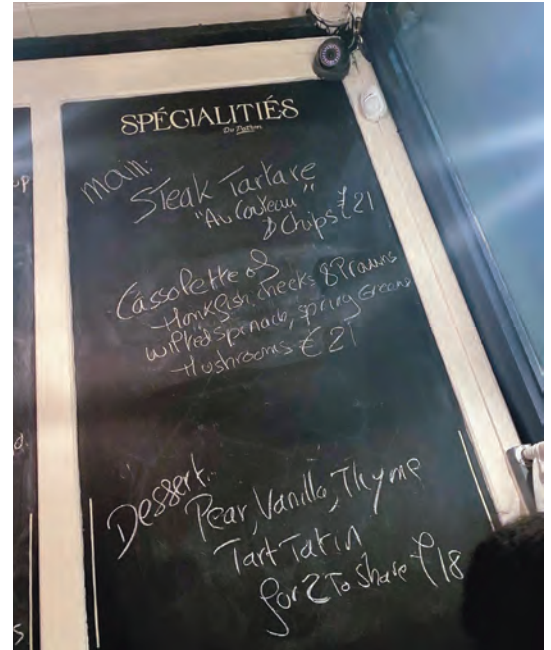 SPÉCIALITIÉS
Du Patron
main:
Steak Tartare
"Au Couteau"
& Chips £21
Cassolette of
Monkfish cheeks & Prawns
wilted spinach, spring Greens
Mushrooms £21
Dessert:
Pear, Vanilla, Thyme
Tart Tatin
for 2 To Share £18
up
d.
S